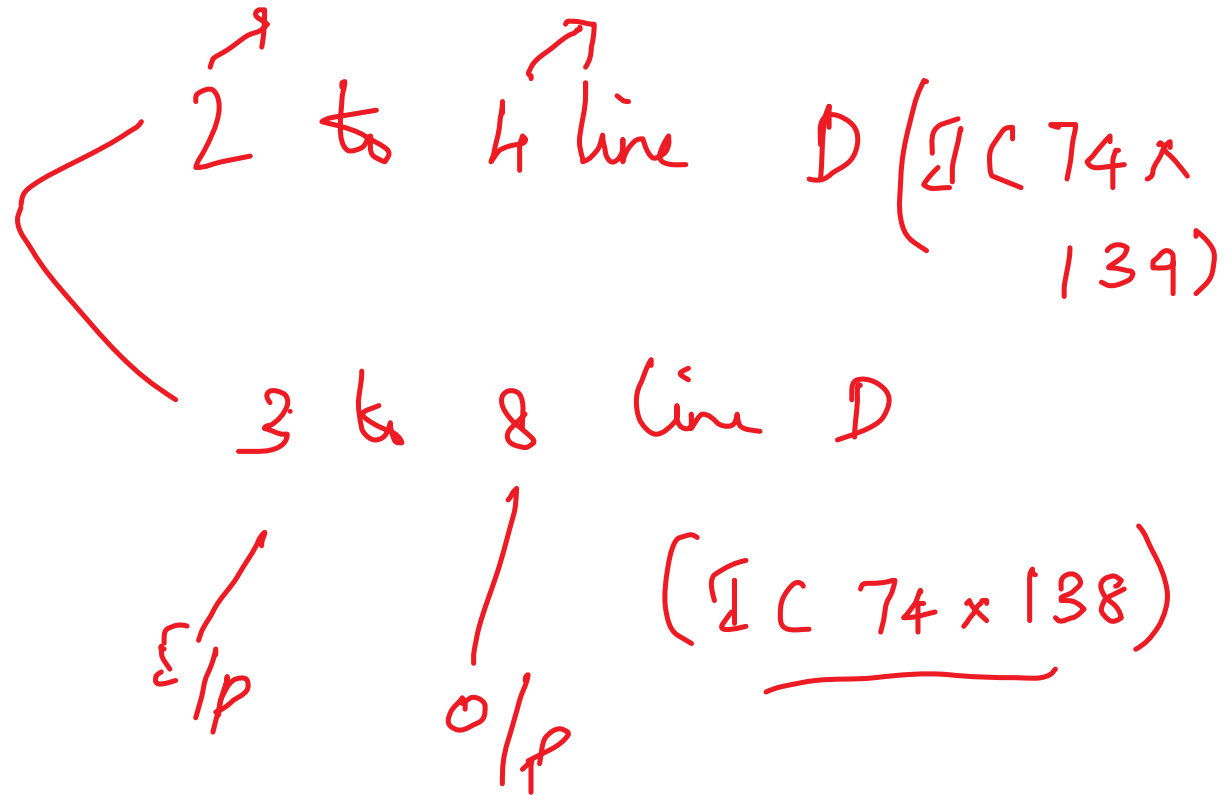 2 to 4 line D (IC 74x
139)
3 to 8 line D
(IC 74x138)
I/p
O/p